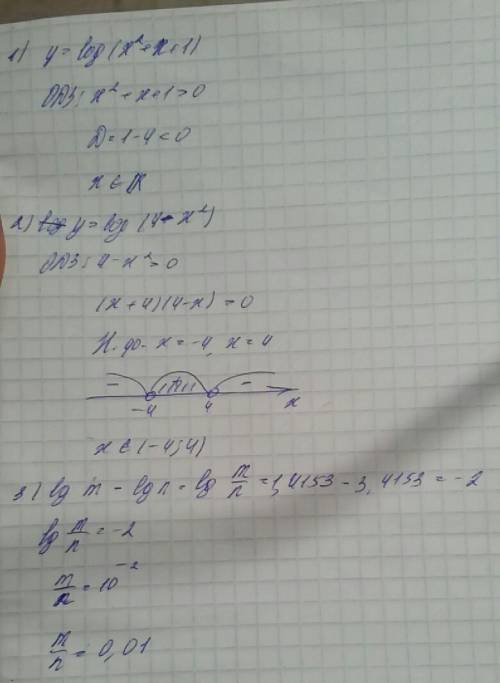 1) y = log(x²+x+1)
ОДЗ: x²+x+1>0
D=1-4<0
x∈R
2) y=log(4-x²)
ОДЗ: 4-x²>0
(x+4)(4-x)=0
Н. ф. x=-4, x=4
- + -
-4 4 x
x∈(-4;4)
3) lg m - lg n = lg m/n = 1,4153 - 3,4153 = -2
lg m/n = -2
m/n = 10⁻²
m/n = 0,01